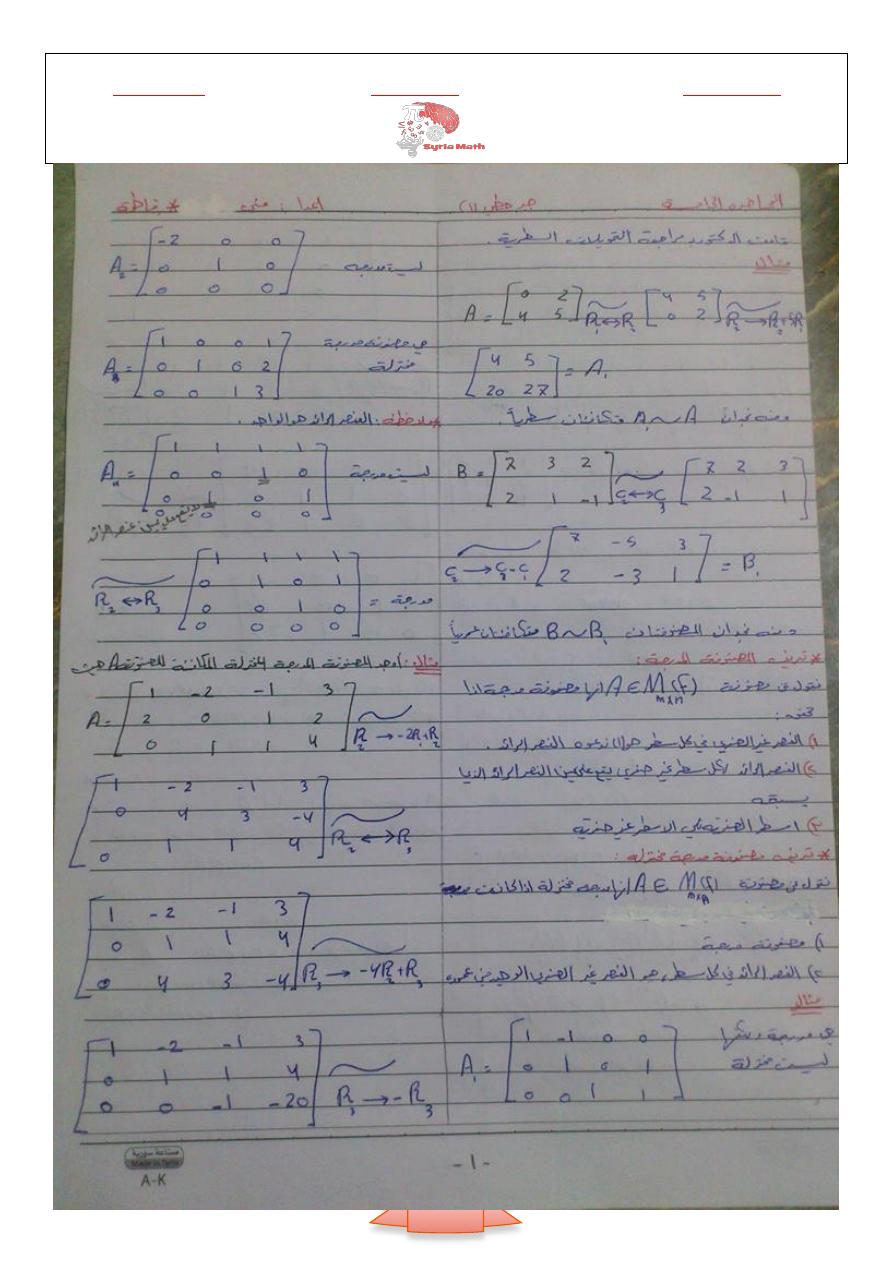 Syria Math
المحاضرة الخامسة جبر خطي (1) إعداد : منى * فاطمة
قامت الدكتورة بمراجعة التحويلات السطرية .
مثال
A = [0 2
4 5] R₁↔R₂ [4 5
0 2] R₂→R₂+5R₁
[4 5
20 27] = A₁
ومنه نجد أن A₁ ~ A متكافئتان سطرياً .
B = [7 3 2
2 1 -1] C₂↔C₃ [7 2 3
2 -1 1]
C₂→C₂-C₁ [7 -5 3
2 -3 1] = B₁
ومنه نجد أن المصفوفتان B ~ B₁ متكافئتان عمودياً
* تعريف المصفوفة المدرجة :
نقول عن مصفوفة A ∈ M(F) m×n أنها مصفوفة مدرجة إذا
حققت :
1) العنصر غير الصفري في كل سطر هو 1 ندعوه العنصر الرائد .
2) العنصر الرائد لكل سطر غير صفري يقع على يمين العنصر الرائد الذي
يسبقه
3) اسطر الصفرية تلي الأسطر غير صفرية
* تعريف مصفوفة مدرجة مختزلة :
نقول عن مصفوفة A ∈ M(F) m×n أنها مدرجة مختزلة إذا كانت
1) مصفوفة مدرجة
2) العنصر الرائد في كل سطر هو العنصر غير الصفري الوحيد في عموده
مثال
A₁ = [1 -1 0 0
0 1 0 1
0 0 1 1] هي مدرجة ولكنها
ليست مختزلة
A₂ = [-2 0 0
0 1 0
0 0 0] ليست مدرجة
A₃ = [1 0 0 1
0 1 0 2
0 0 1 3] هي مصفوفة مدرجة
مختزلة
* ملاحظة : العنصر الرائد هو الواحد .
A₄ = [1 1 1 1
0 0 1 0
0 1 0 1
0 0 0 0] ليست مدرجة
R₂↔R₃ [1 1 1 1
0 1 0 1
0 0 1 0
0 0 0 0] = مدرجة
مثال : أوجد المصفوفة المدرجة المختزلة المكافئة للمصفوفة A حيث
A = [1 -2 -1 3
2 0 1 2
0 1 1 4] R₂→-2R₁+R₂
[1 -2 -1 3
0 4 3 -4
0 1 1 4] R₂↔R₃
[1 -2 -1 3
0 1 1 4
0 4 3 -4] R₃→-4R₂+R₃
[1 -2 -1 3
0 1 1 4
0 0 -1 -20] R₃→-R₃
-1-
صناعة سورية
Made in Syria
A-K